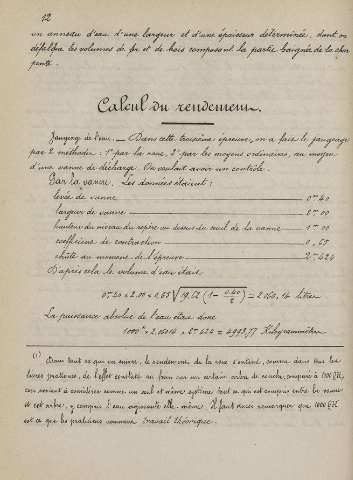 12
un anneau d'eau d'une largeur et d'une épaisseur déterminée, dont on
défalque les volumes de fer et de bois composant la partie baignée de la char
pente.
Calcul du rendement.
Jaugeage de l'eau. — Dans cette troisième épreuve, on a fait le jaugeage
par 2 méthodes : 1° par la roue, 2° par les moyens ordinaires, au moyen
d'une vanne de décharge. On voulait avoir un contrôle.
Par la vanne. Les données étaient :
levée de vanne 0m40
largeur de vanne 2m00
hauteur du niveau du repère au dessus du seuil de la vanne 1m00
coefficient de contraction 0,65
chute au moment de l'épreuve 2m424
D'après cela le volume d'eau était
0m40 × 2.00 × 0.65 √19,62 (1 − 0.40/2) = 2060,14 litres
La puissance absolue de l'eau était donc
1000k × 2,06014 × 2m424 = 4993,77 Kilogrammètres
(1) Avant tout ce qui va suivre, le rendement de la roue s'entend, comme dans tous les
livres pratiques, de l'effet constaté au frein sur un certain arbre de couche,
considérer comme un seul et même système tout ce qui est compris entre la vanne
et cet arbre, y compris l'eau elle-même. Il faut aussi remarquer que
est ce que les praticiens nomment travail théorique.